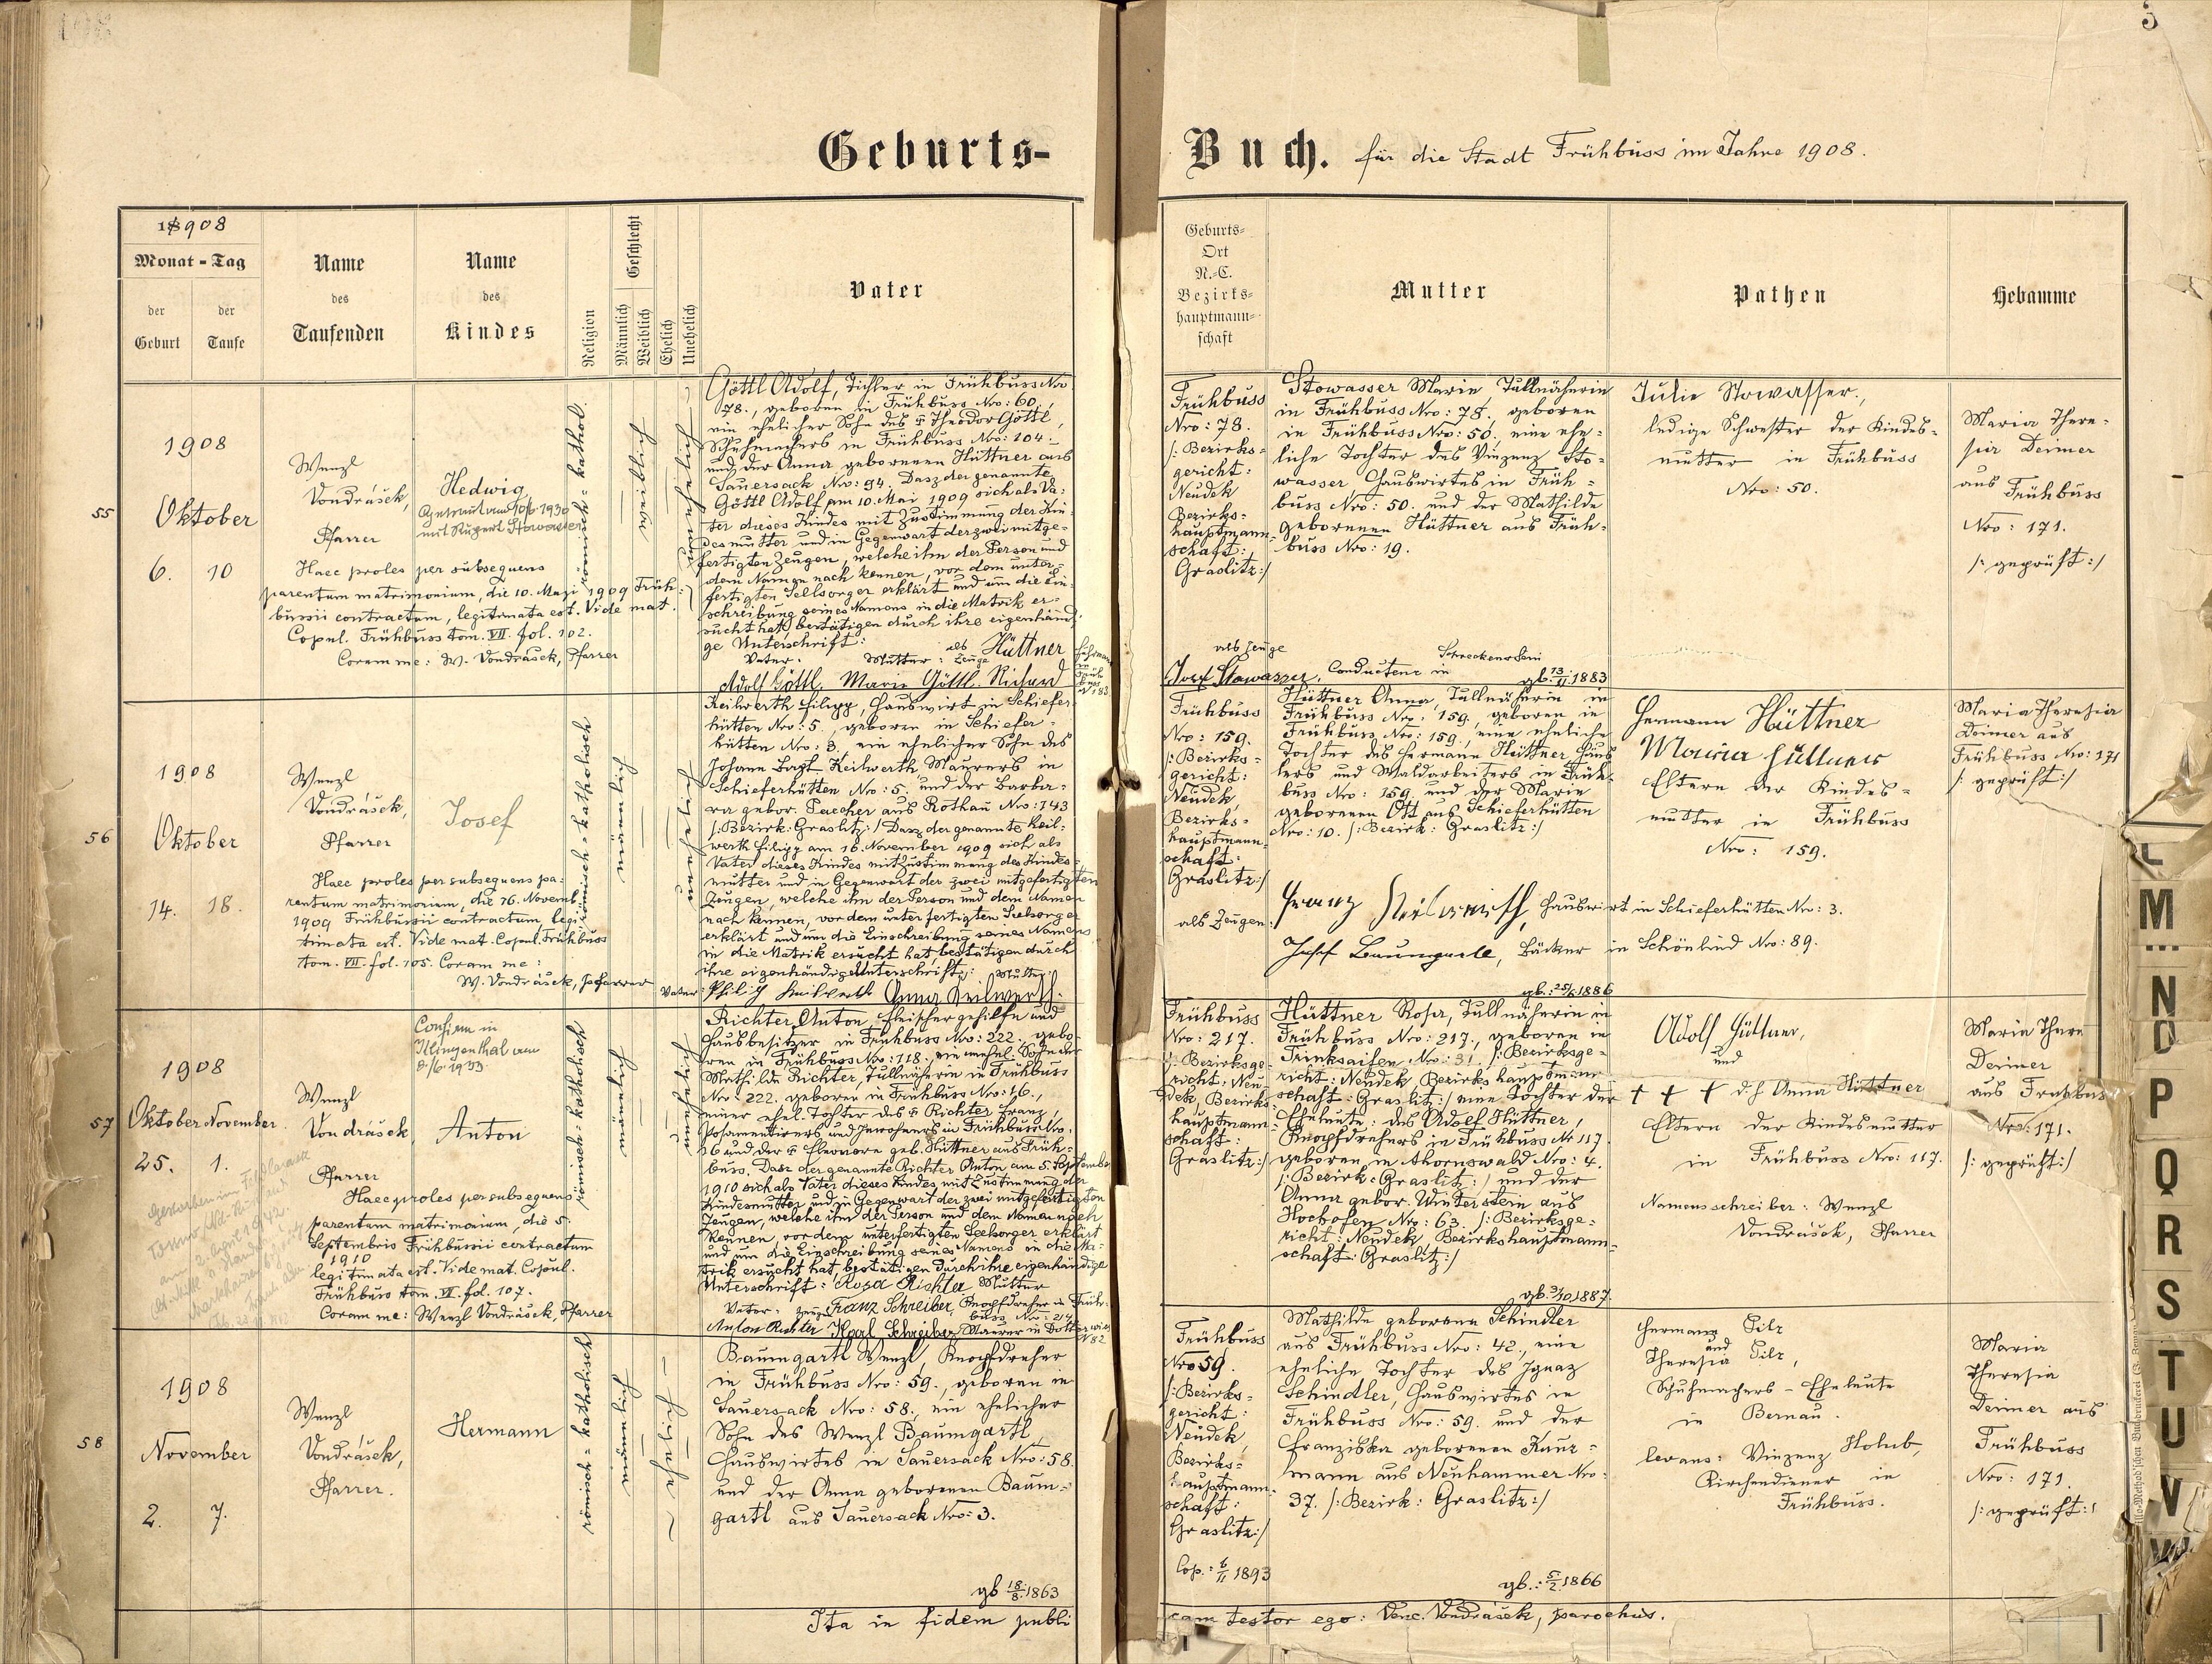 Geburts-
Buch. für die Stadt Frühbuss im Jahre 1908.
18908
Monat-Tag
der Geburt
der Taufe
Name des Taufenden
Name des Kindes
Religion
Geschlecht
Männlich
Weiblich
Ehelich
Unehelich
Vater
Geburts-
Ort
N.-C.
Bezirks-
hauptmann-
schaft
Mutter
Pathen
Hebamme
55
1908
Oktober
6. 10
Wenzl
Vondrášek,
Pfarrer
Hedwig
römisch = kathol.
weiblich
unehelich
Haec proles per subsequens
parentum matrimonium, die 10. Maji 1909 Früh-
bussii contractum, legitimata est. Vide mat.
Copul. Frühbuss tom. VII. fol. 102.
Coram me: W. Vondrášek, Pfarrer
Göttl Adolf, Tichler in Frühbuss Nro
78., geboren in Frühbuss Nro: 60.,
ein ehelicher Sohn des † Theodor Göttl,
Schuhmachers in Frühbuss Nro: 104.
und der Anna geborenen Hüttner aus
Sauersack Nro: 94. Dasz der genannte
Göttl Adolf am 10. Mai 1909 sich als Va-
ter dieses Kindes mit Zustimmung der Kin-
desmutter und in Gegenwart der zwei mitge-
fertigten Zeugen, welche ihn der Person und
dem Namen nach kennen, vor dem unter-
fertigten Sellsorger erklärt und um die Ein-
schreibung seines Namens in die Matrik er-
sucht hat, bestätigen durch ihre eigenhändi-
ge Unterschrift:
Vater: Mutter: als Zeuge Hüttner
Adolf Göttl. Marie Göttl. Richard
Frühbuss
Nro: 78.
/: Bezirks-
gericht:
Neudek
Bezirks-
hauptmann-
schaft:
Graslitz:/
Stowasser Marie, Tullnäherin
in Frühbuss Nro: 78., geboren
in Frühbuss Nro: 50., eine ehe-
liche Tochter des Vinzenz Sto-
wasser Hauswirtes in Früh-
buss Nro: 50. und der Mathilde
geborenen Hüttner aus Früh-
buss Nro: 19.
Julie Stowasser.,
ledige Schwester der Kindes-
mutter in Frühbuss
Nro: 50.
Maria There-
sia Deimer
aus Frühbuss
Nro: 171.
/: geprüft:/
als Zeuge
Josef Stowasser, Conducteur in
gb. 13/11 1883
56
1908
Oktober
14. 18.
Wenzl
Vondrášek,
Pfarrer
Josef
römisch = katholisch
männlich
unehelich
Haec proles per subsequens pa-
rentum matrimonium, die 16. Novemb.
1909 Frühbussii contractum, legi-
timata est. Vide mat. Copul. Frühbuss
tom. VII. fol. 105. Coram me:
W. Vondrášek, Pfarrer
Keilwerth Filipp, Hauswirt in Schiefer-
hütten Nro: 5., geboren in Schiefer-
hütten Nro: 3. ein ehelicher Sohn des
Johann Bapt. Keilwerth, Maurers in
Schieferhütten Nro: 5. und der Barba-
ra gebor. Paecher aus Rothau Nro: 143
/: Bezirk: Graslitz:/ Dasz der genannte Keil-
werth Filipp am 16. November 1909 sich als
Vater dieses Kindes mit Zustimmung des Kindes-
mutter und in Gegenwart der zwei mitgefertigten
Zeugen, welche ihn der Person und dem Namen
nach kennen, vor dem unterfertigten Seelsorger
erklärt und um die Einschreibung seines Namens
in die Matrik ersucht hat, bestätigen durch
ihre eigenhändige Unterschrift: Mutter:
Vater: Philipp Keilwerth Anna Keilwerth.
Frühbuss
Nro: 159.
/: Bezirks-
gericht:
Neudek,
Bezirks-
hauptmann-
schaft:
Graslitz:/
Hüttner Anna, Tullnäherin in
Frühbuss Nro: 159., geboren in
Frühbuss Nro: 159., eine eheliche
Tochter des Hermann Hüttner Häus-
lers und Waldarbeiters in Früh-
buss Nro: 159. und der Marie
geborenen Ott aus Schieferhütten
Nro: 10. /: Bezirk: Graslitz:/
Hermann Hüttner
Maria Hüttner
Eltern der Kindes-
mutter in Frühbuss
Nro: 159.
Maria Theresia
Deimer aus
Frühbuss Nro: 171
/: geprüft:/
als Zeugen: Franz Keilwerth, Hauswirt in Schieferhütten Nro: 3.
Josef Baumgartl, Bäcker in Schönlind Nro: 89.
gb.: 25/5 1886
57
1908
Oktober November
25. 1.
Wenzl
Vondrášek
Pfarrer
Confirm in
Klingenthal
Anton
römisch = katholisch
männlich
unehelich
Haec proles per subsequens
parentum matrimonium, die 5.
Septembris Frühbussii contractum
1910
legitimata est. Vide mat. Copul.
Frühbuss tom. VII. fol. 107.
Coram me: Wenzl Vondrášek, Pfarrer
Richter Anton, Fleischergehilfe und
Hausbesitzer in Frühbuss Nro: 222. gebo-
ren in Frühbuss Nro: 118. ein unehel. Sohn der
Mathilde Richter, Tullnäherin in Frühbuss
Nro: 222. geboren in Frühbuss Nro: 16.,
einer ehel. Tochter des † Richter Franz,
Posamentirers und Inwohners in Frühbuss Nro.
16 und der † Eleonora geb. Hüttner aus Früh-
buss. Dasz der genannte Richter Anton am 5. September
1910 sich als Vater dieses Kindes mit Zustimmung der
Kindesmutter und in Gegenwart der zwei mitgefertigten
Zeugen, welche ihn der Person und dem Namen nach
kennen, vor dem unterfertigten Seelsorger erklärt
und um die Einschreibung seines Namens in die Ma-
trik ersucht hat, bestätigen durch ihre eigenhändige
Unterschrift: Rosa Richter Mutter
Vater: Zeugen Franz Schreiber, Knopfdreher in Früh-
buss Nro: 214
Anton Richter Karl Schreiber, Maurer in
Frühbuss
Nro: 217.
/: Bezirksge-
richt: Neu-
dek, Bezirks-
hauptmann-
schaft:
Graslitz:/
Hüttner Rosa, Tullnäherin in
Frühbuss Nro: 217., geboren in
Trinksaifen Nro: 31. /: Bezirksge-
richt: Neudek, Bezirkshauptmann-
schaft: Graslitz:/ eine Tochter der
Eheleute: des Adolf Hüttner,
Knopfdrehers in Frühbuss N. 117.
geboren in Ahornswald Nro: 4.
/: Bezirk: Graslitz:/ und der
Anna gebor. Winterstein aus
Hochofen Nro: 63. /: Bezirksge-
richt: Neudek, Bezirkshauptmann-
schaft: Graslitz:/
gb. 3/10 1887.
Adolf Hüttner,
und
† † † d. h. Anna Hüttner
Eltern der Kindesmutter
in Frühbuss Nro: 117.
Namensschreiber: Wenzl
Vondrášek, Pfarrer
Maria There
Deimer
aus Frühbuss
Nro: 171.
/: geprüft:/
58
1908
November
2. 7.
Wenzl
Vondrášek,
Pfarrer.
Hermann
römisch = katholisch
männlich
ehelich
Baumgartl Wenzl, Knopfdreher
in Frühbuss Nro: 59., geboren in
Sauersack Nro: 58., ein ehelicher
Sohn des Wenzl Baumgartl,
Hauswirtes in Sauersack Nro: 58.
und der Anna geborenen Baum-
gartl aus Sauersack Nro: 3.
gb 18/8. 1863
Frühbuss
Nro 59.
/: Bezirks-
gericht:
Neudek,
Bezirks-
hauptmann-
schaft:
Graslitz:/
Cop.: 6/11 1893
Mathilde geborene Schindler
aus Frühbuss Nro: 42., eine
eheliche Tochter des Ignaz
Schindler, Hauswirtes in
Frühbuss Nro: 59. und der
Franziska geborenen Kauz-
mann aus Neuhammer Nro:
37. /: Bezirk: Graslitz:/
gb.: 5/2. 1866
Hermann Pilz
und
Theresia Pilz,
Schuhmachers-Eheleute
in Bernau.
levans: Vinzenz Holub,
Kirchendiener in
Frühbuss.
Maria
Theresia
Deimer aus
Frühbuss
Nro: 171.
/: geprüft:/
Ita in fidem publi
cam testor ego: Venc. Vondrášek, parochus.
L
M
N
O
P
Q
R
S
T
U
V
W